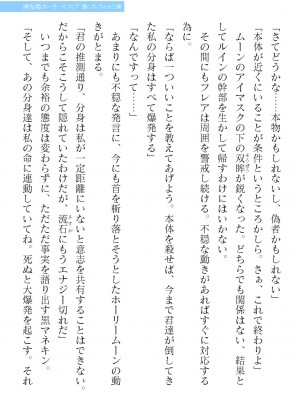 「さてどうする……本物かもしれないし、偽者かもしれない」
「本体が近くにいることが条件というところかしら。さぁ、これで終わりよ」
ムーンのアイマスクの下の双眸が鋭くなった。どちらでも関係はない、結果と
してルインの幹部を生かして帰すわけにはいかない。
その間にもフレアは周囲を警戒し続ける。不穏な動きがあればすぐに対応する
為に。
「ならば一ついいことを教えてあげよう。本体を殺せば、今まで君達が倒してき
た私の分身はすべて爆発する」
「なんですって……」
あまりにも不穏な発言に、今にも首を斬り落とそうとしたホーリームーンの動
きがとまる。
「君の推測通り、分身は私が一定距離にいないと意志を共有することはできない。
だからこそこうして隠れていたわけだが、流石にもうエナジー切れだ」
いつまでも余裕の態度は変わらずに、ただただ事実を語り出す黒マネキン。
「そして、あの分身達は私の命に連動していてね。死ぬと大爆発を起こす。それ